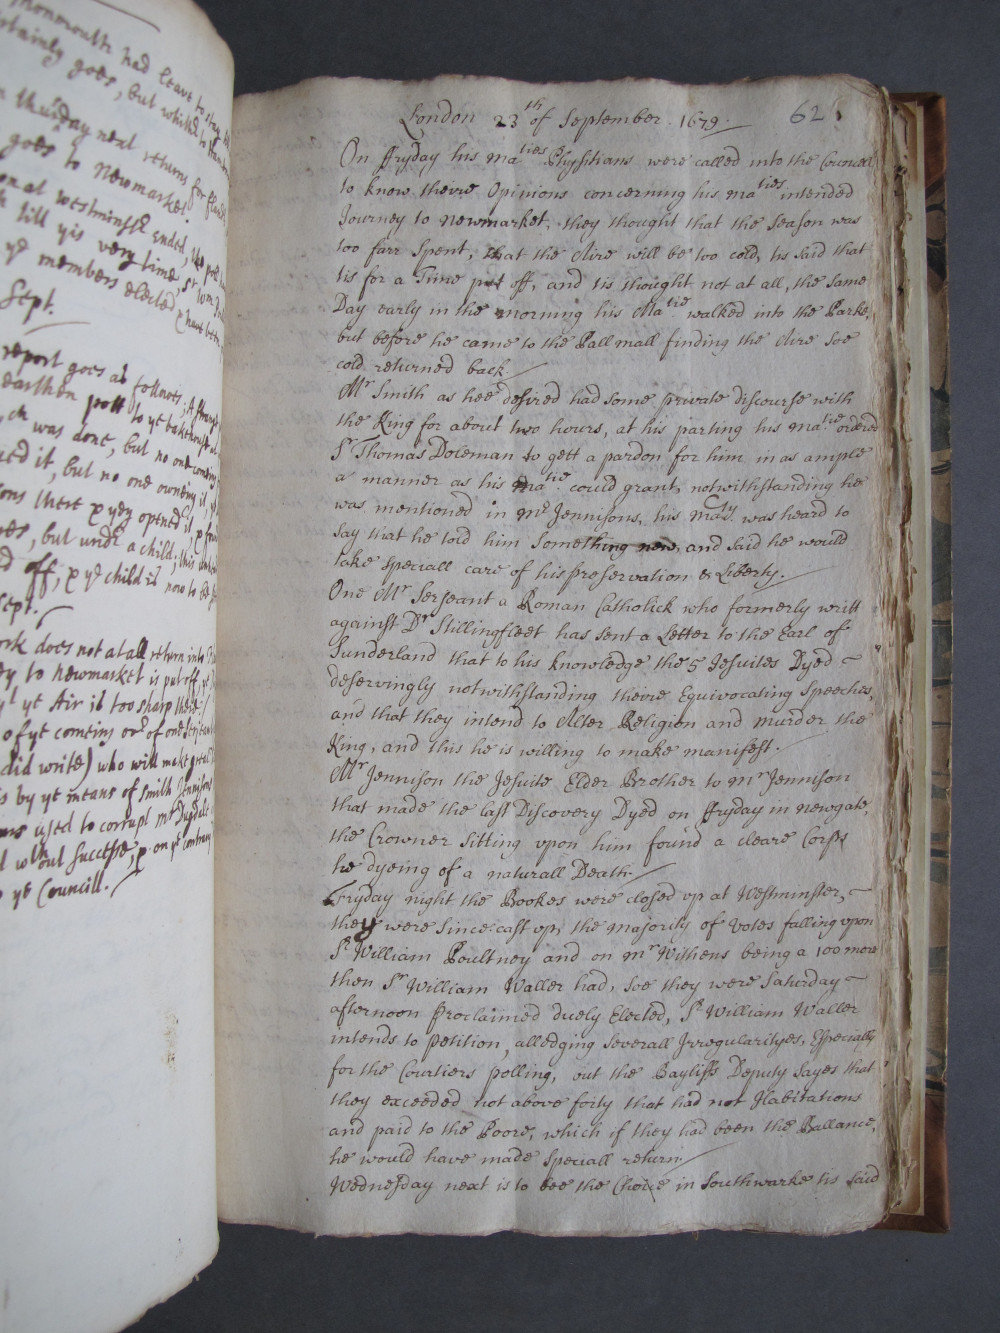 Monmouth had leave to stay
certainly goes, but whither to
thursday next returns for
goes to Newmarket.
on at westminstr Ended, the poll
till yis very time, Sr Wm
ye members elected, & have been
Sept.
report goes as follows; A
earthen pott to ye
ch was done, but no one coming
it, but no one owning it,
there & yey opened it, &
but undr a child, this
off, & ye child is now to be
Sept.
ork does not at all return into
to Newmarket is put off,
yt ye Air is too sharp there
of yt coming ovr of one Serjeant
did write) who will make great
by ye means of Smith Jennisons
used to corrupt Mr Dugdale
wthout Successe, & on ye contrary
ye Councill.
London 23th of September 1679. 62
On ffryday his Maties Physitians were called into the Councell
to know theire Opinions concerning his Maties intended
Journey to Newmarket, they thought that the Season was
too farr Spent, that the Aire will be too cold, tis said that
tis for a Time put off, and tis thought not at all, the same
Day early in the morning his Matie walked into the Parke,
but before he came to the Pall mall finding the Aire soe
cold returned back.
Mr Smith as hee desired had some private discourse with
the King for about two hours, at his parting his Matie ordered
Sr Thomas Doleman to gett a pardon for him in as ample
a manner as his Matie could grant, notwithstanding he
was mentioned in Mr Jennisons, his Maty was heard to
say that he told him Something new, and said he would
take speciall care of his preservation & Liberty.
One Mr Serjeant a Roman Catholick who formerly writt
against Dr Stillingfleet has sent a Letter to the Earl of
Sunderland that to his knowledge the 5 Jesuites Dyed
deservingly notwithstanding theire Equivocating Speeches,
and that they intend to Alter Religion and murder the
King, and this he is willing to make manifest.
Mr Jennison the Jesuite Elder Brother to Mr Jennison
that made the last Discovery Dyed on ffryday in newgate,
the Crowner Sitting upon him found a cleare Corps
he dyeing of a naturall Death.
Fryday night the Bookes were closed up at Westminster,
they were since cast up, the majority of Votes falling upon
Sr William Poultney and on Mr Withens being a 100 more
then Sr William Waller had, soe they were Saturday
afternoon Proclaimed duely Elected, Sr William Waller
intends to Petition, alledging severall Irregularityes, Especially
for the Courtiers polling, but the Bayliffs Deputy Sayes that
they exceeded not above forty that had not Habitations
and paid to the Poore, which if they had been the Ballance,
he would have made speciall return.
Wednesday next is to bee the Choice in Southwarke tis said